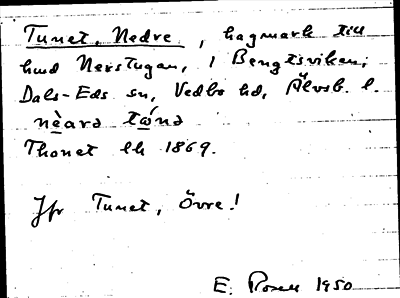 Tunet, Nedre, hagmark till
hmd Nerstugan, i Bengtsviken,
Dals-Eds sn, Vedbo hd, Älvsb. l.
nèarə tɷ́nə
Thonet lk 1869.
Jfr Tunet, Övre!
E. Rosell 1950